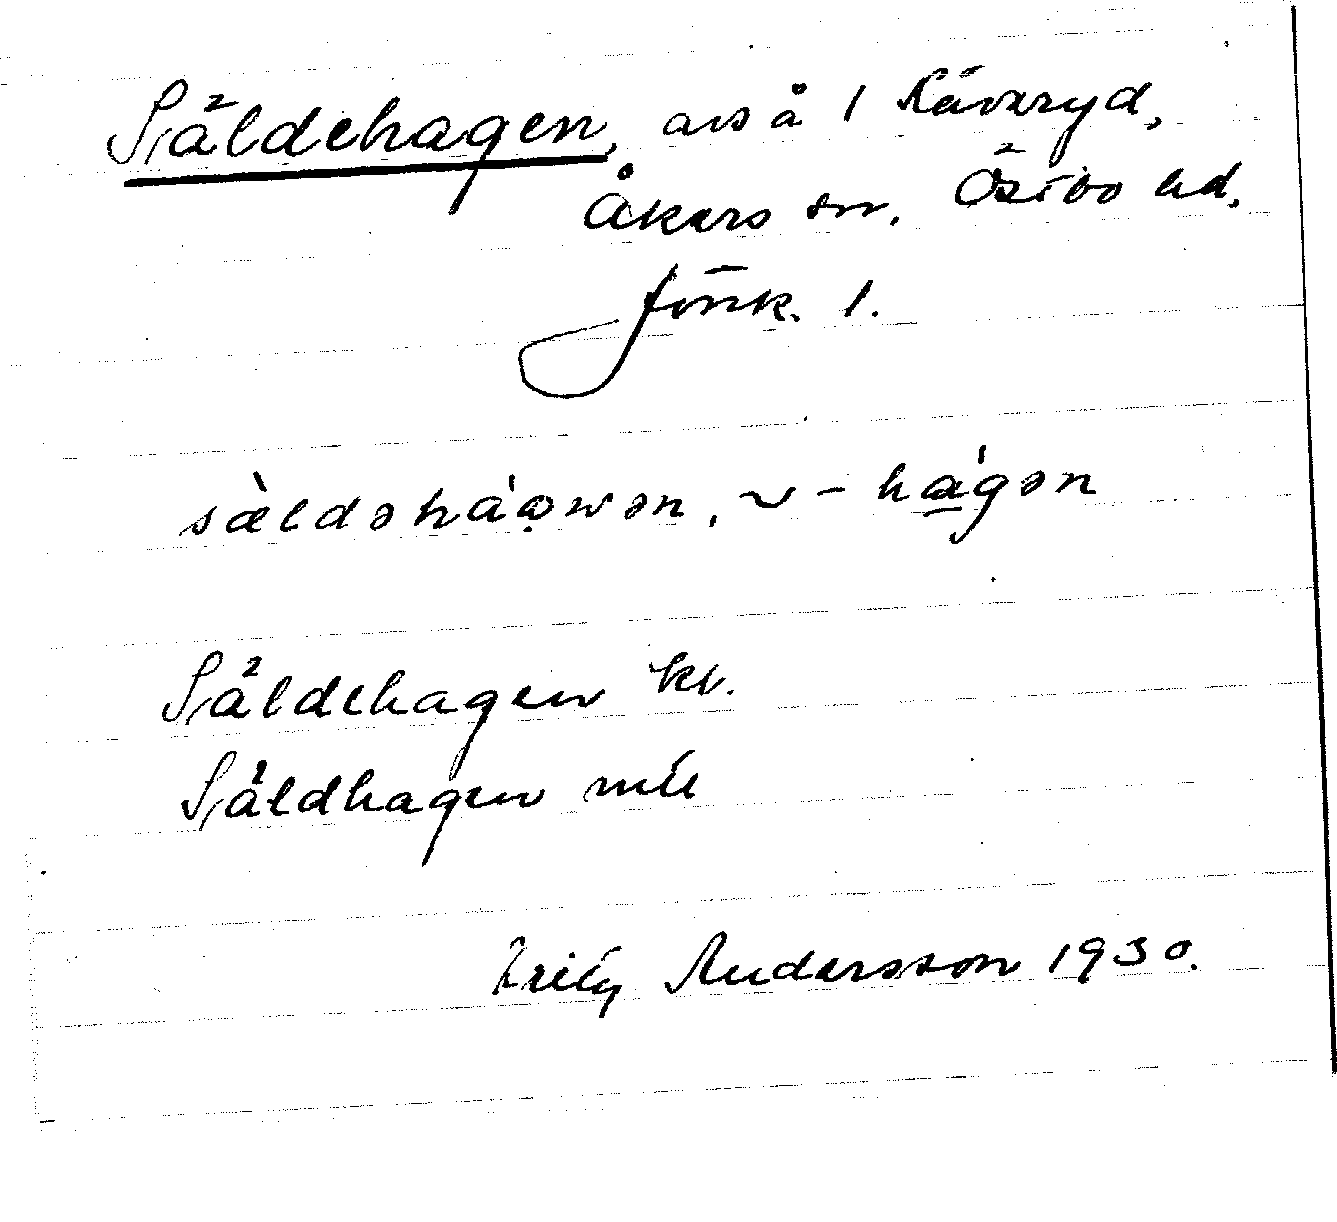 Säldehagen, avs å 1 Rävaryd,
Åkers sn. Östbo hd.
Jönk. l.
sàldəháɷwən, ~ -hágən
Säldehagen kt.
Säldhagen mtl
Andersson 1930.